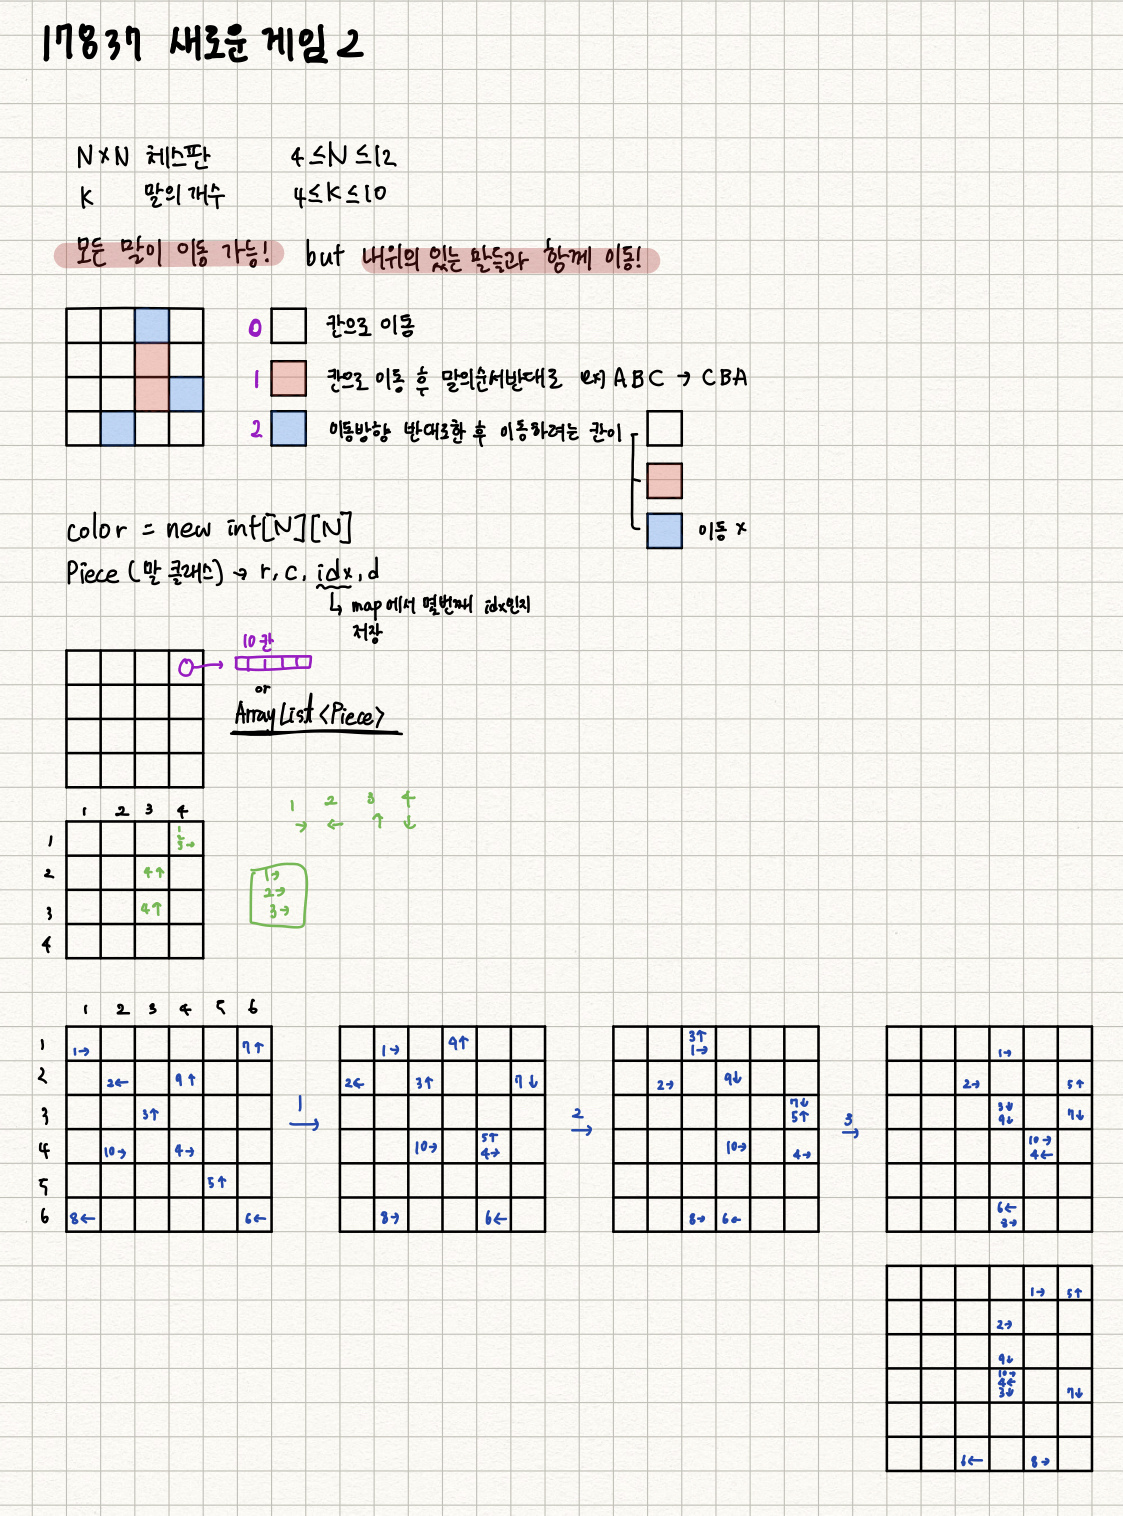 17837 새로운 게임 2
N×N 체스판 4≤N≤12
K 말의 개수 4≤K≤10
모든 말이 이동 가능! but 내위의 있는 말들과 함께 이동!
0 칸으로 이동
1 칸으로 이동 후 말의순서반대로 ex) ABC → CBA
2 이동방향 반대로한 후 이동하려는 칸이
이동 x
color = new int[N][N]
Piece (말 클래스) → r, c, idx, d
↳ map에서 몇번째 idx인지
저장
10칸
or
ArrayList<Piece>
1 2 3 4
1 2 3 4
→ ← ↑ ↓
1
2
3→
1
2 4↑
3 4↑
4
1→
2→
3→
1 2 3 4 5 6
1 1→ 7↑
2 2← 9↑
3 3↑
4 10→ 4→
5 5↑
6 8← 6←
1
→
1→ 9↑
2← 3↑ 7↓
5↑
10→ 4→
8→ 6←
2
→
3↑
1→
2→ 9↓
7↓
5↑
10→ 4→
8→ 6←
3
→
1→
2→ 5↑
3↓
9↓ 7↓
10→
4←
6←
8→
1→ 5↑
2→
9↓
10→
4←
3↓ 7↓
6← 8→